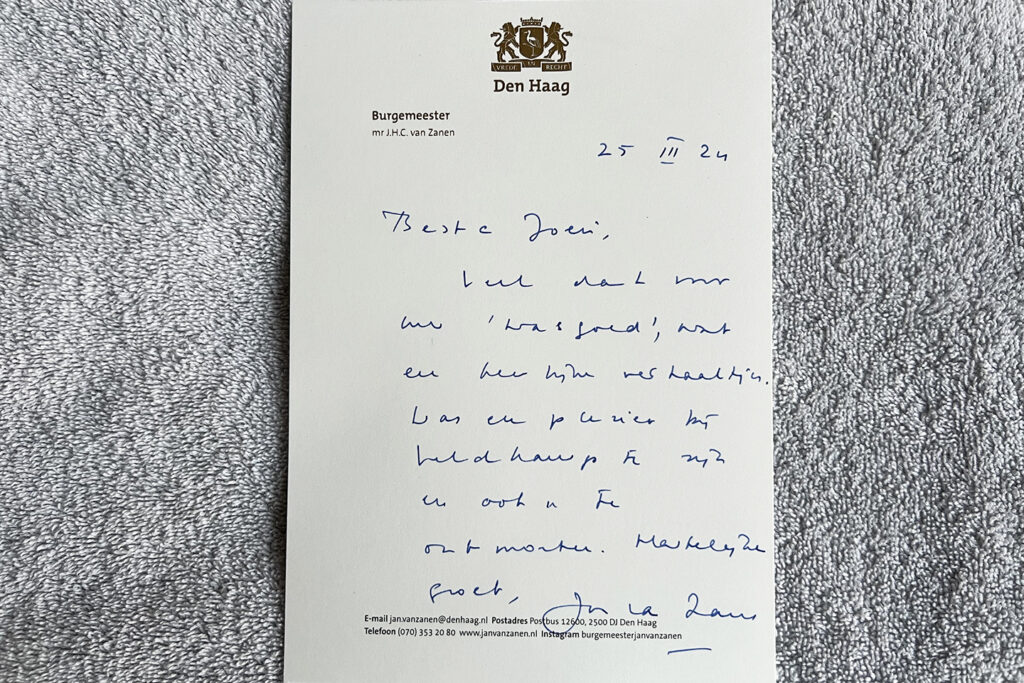 VREDE EN RECHT
Den Haag
Burgemeester
mr J.H.C. van Zanen
25 III 24
Beste Joeri,
Veel dank voor
uw 'was goed', wat
een heerlijke verhaaltjes.
Was een plezier bij
Veldkamp te zijn
en ook u te
ontmoeten. Hartelijke
groet, Jan va Zanen
E-mail jan.vanzanen@denhaag.nl Postadres Postbus 12600, 2500 DJ Den Haag
Telefoon (070) 353 20 80 www.janvanzanen.nl Instagram burgemeesterjanvanzanen